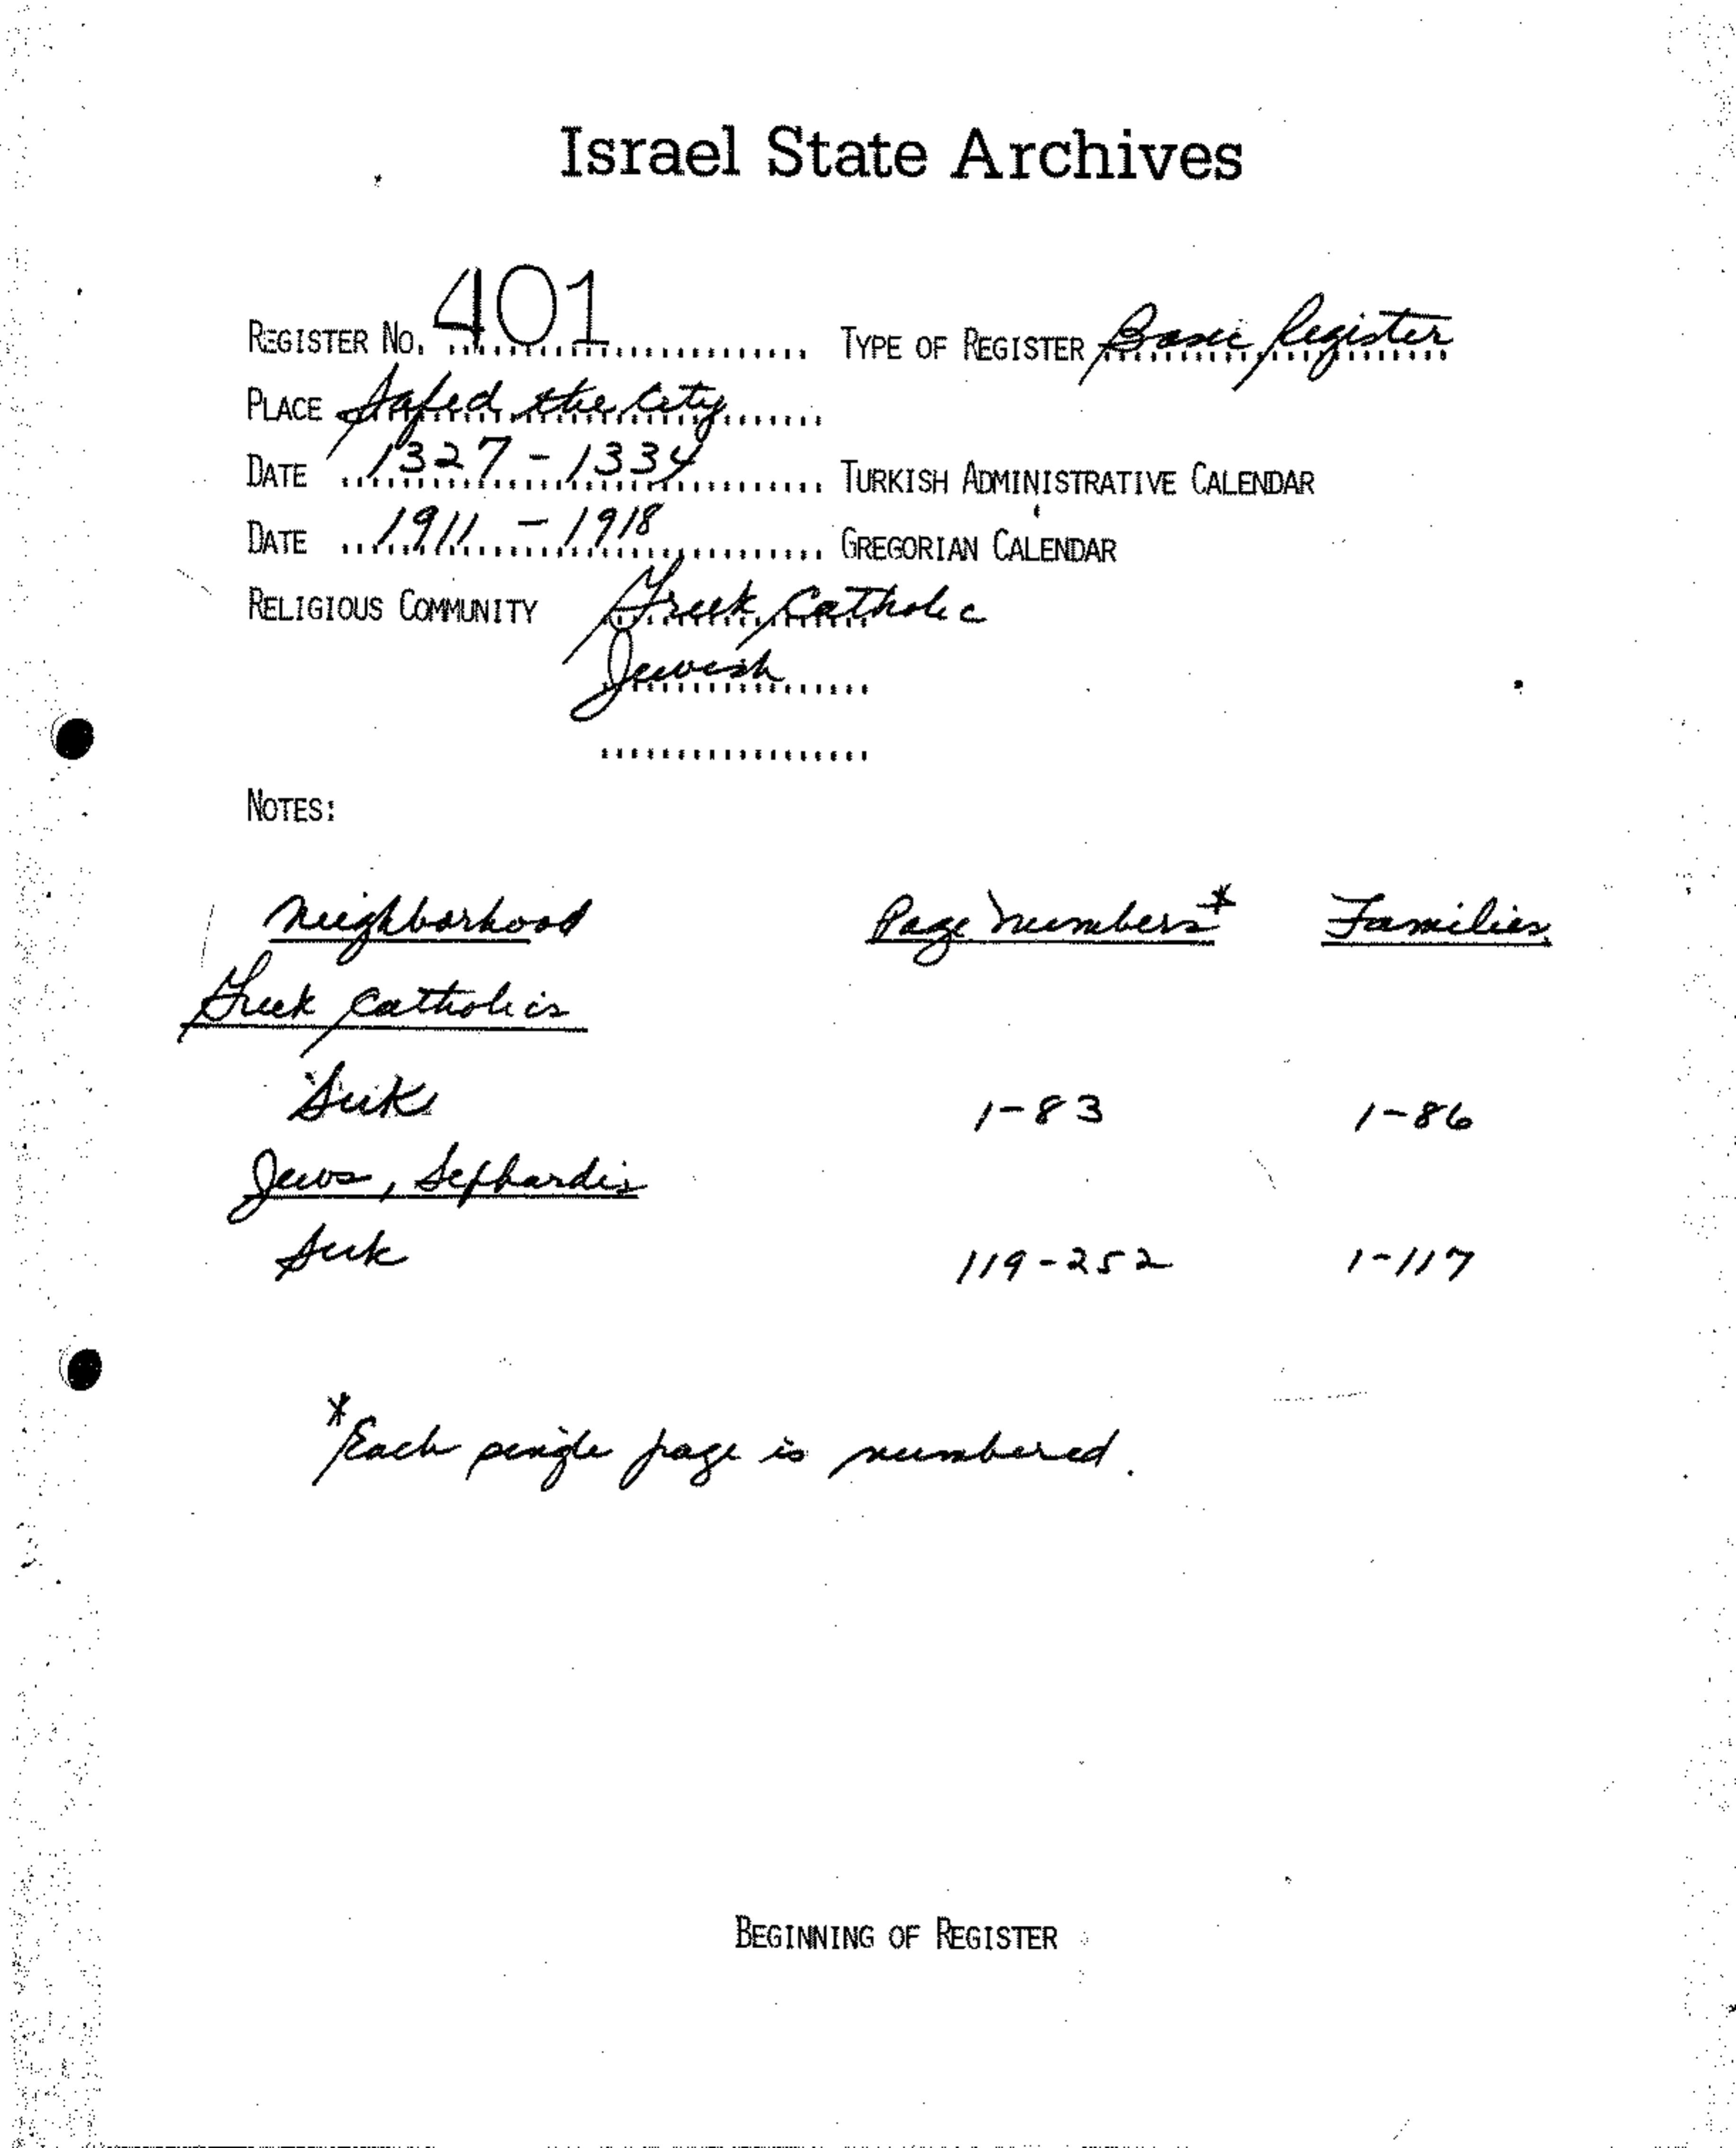 Israel State Archives
REGISTER NO. 401 TYPE OF REGISTER Basic Register
PLACE Safed the City
DATE 1327-1334 TURKISH ADMINISTRATIVE CALENDAR
DATE 1911-1918 GREGORIAN CALENDAR
RELIGIOUS COMMUNITY Greek Catholic
Jewish
NOTES:
Neighborhood Page Numbers* Families
Greek Catholics
Suk 1-83 1-86
Jews, Sephardis
Suk 119-252 1-117
*Each single page is numbered.
BEGINNING OF REGISTER